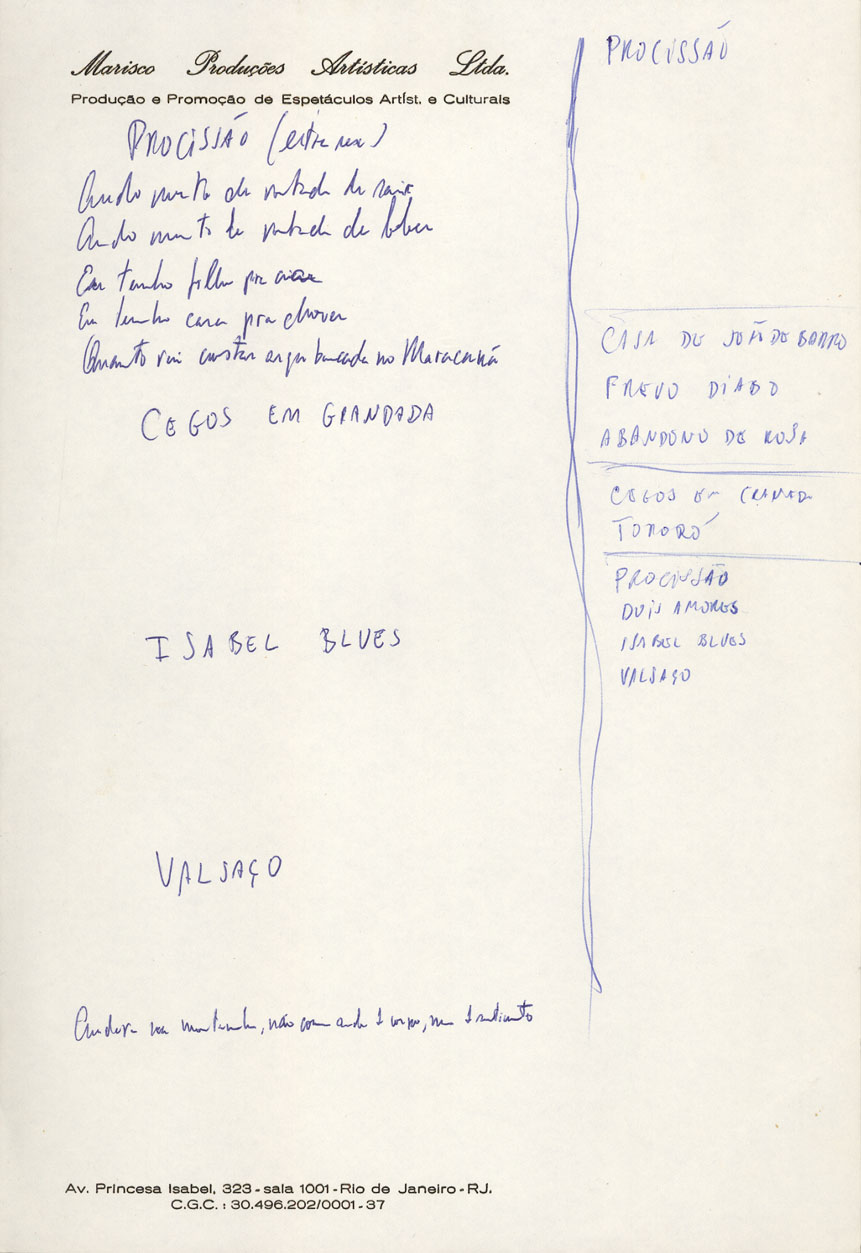 Marisco Produções Artísticas Ltda.
Produção e Promoção de Espetáculos Artíst. e Culturais
PROCISSÃO (entre
Ando muito de vontade de
Ando muito de vontade de beber
Eu tenho filho pra criar
Eu tenho cara pra chover
Quanto vai custar arquibancada no Maracanã
CEGOS EM GRANDADA
ISABEL BLUES
VALSAÇO
montanha, não como anda 1 corpo, 1 sentimento
Av. Princesa Isabel, 323 - sala 1001 - Rio de Janeiro - RJ.
C.G.C. : 30.496.202/0001 - 37
PROCISSÃO
CASA DE JOÃO DE BARRO
FREVO DIABO
ABANDONO DE ROSA
CEGOS EM
TORORÓ
PROCISSÃO
DOIS AMORES
ISABEL BLUES
VALSAÇO